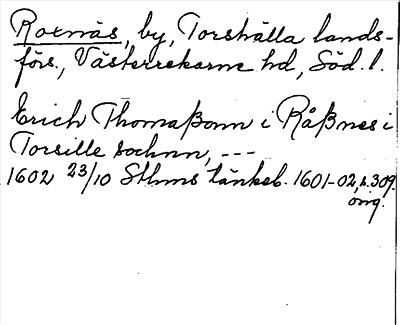 Roxnäs, by, Torshälla lands-
förs., Västerrekarne hd, Söd. l.
Erich Thomaßonn i Råßnes i
Torsille sochnn, ---
1602 23/10 Sthms tänkeb. 1601-02, s. 309.
orig.